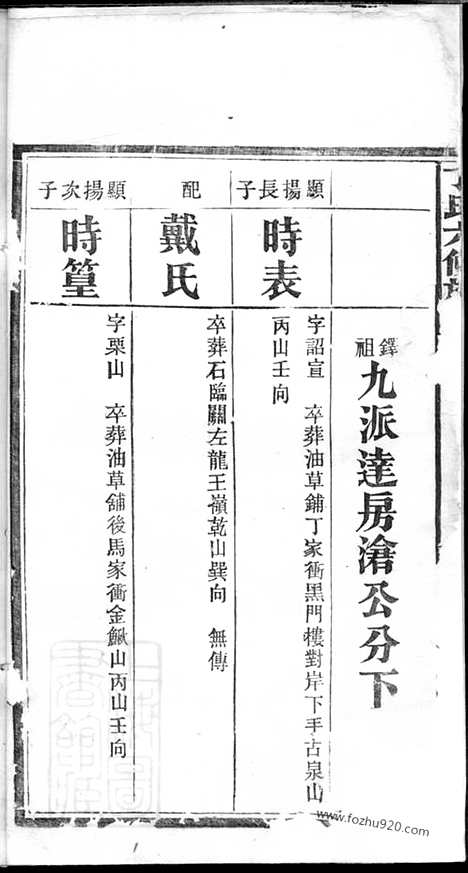 鐸祖九派達房滄公分下
顯揚長子
時表
字詔宣　卒葬油草鋪丁家衝黑門樓對岸下手古泉山
丙山壬向
配
戴氏
卒葬石臨關左龍王嶺乾山巽向　無傳
顯揚次子
時篁
字栗山　卒葬油草舖後馬家衝金鰍山丙山壬向
www.fozhu920.com